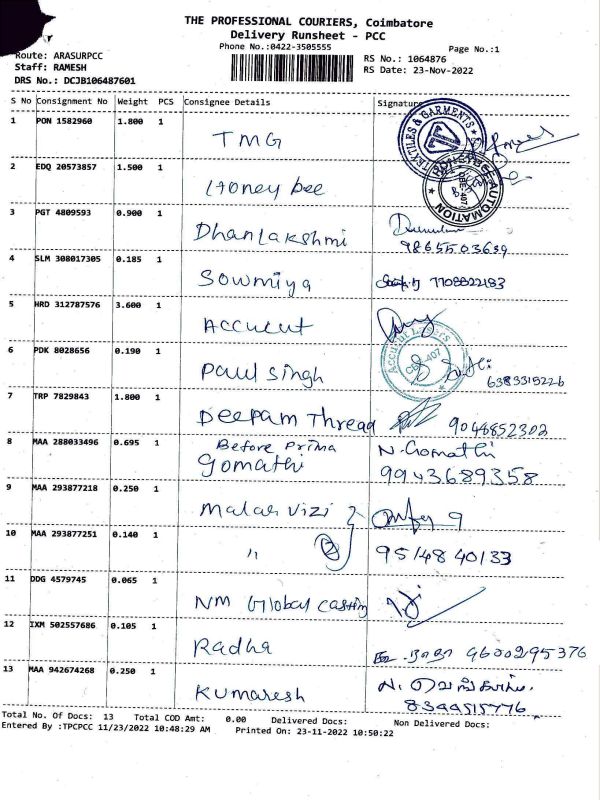 THE PROFESSIONAL COURIERS, Coimbatore
Delivery Runsheet - PCC
Phone No.:0422-3505555
Page No.:1
Route: ARASURPCC
RS No.: 1064876
Staff: RAMESH
RS Date: 23-Nov-2022
DRS No.: DCJB106487601
S No Consignment No Weight PCS Consignee Details Signature
1 PON 1582960 1.800 1 TMG
TEXTILES & GARMENTS
2 EDQ 20573857 1.500 1 Honey bee
AUTOMATION
3 PGT 4809593 0.900 1 Dhanlakshmi
9865503639
4 SLM 308017305 0.185 1 Sowmiya 7708822183
5 HRD 312787576 3.600 1 Accucut
Accucut Lasers
CBE-407
6 PDK 8028656 0.190 1 Paul Singh
6383315226
7 TRP 7829843 1.800 1 Deepam Thread 9048852302
8 MAA 288033496 0.695 1 Before Prima
Gomathi N. Gomathi
9943689358
9 MAA 293877218 0.250 1 Malar vizi
10 MAA 293877251 0.140 1 " 2 9514840133
11 DDG 4579745 0.065 1 NM Global casting
12 IXM 502557686 0.105 1 Radha ராதா 9600295376
13 MAA 942674268 0.250 1 Kumaresh
8344515776
Total No. Of Docs: 13 Total COD Amt: 0.00 Delivered Docs: Non Delivered Docs:
Entered By :TPCPCC 11/23/2022 10:48:29 AM Printed On: 23-11-2022 10:50:22